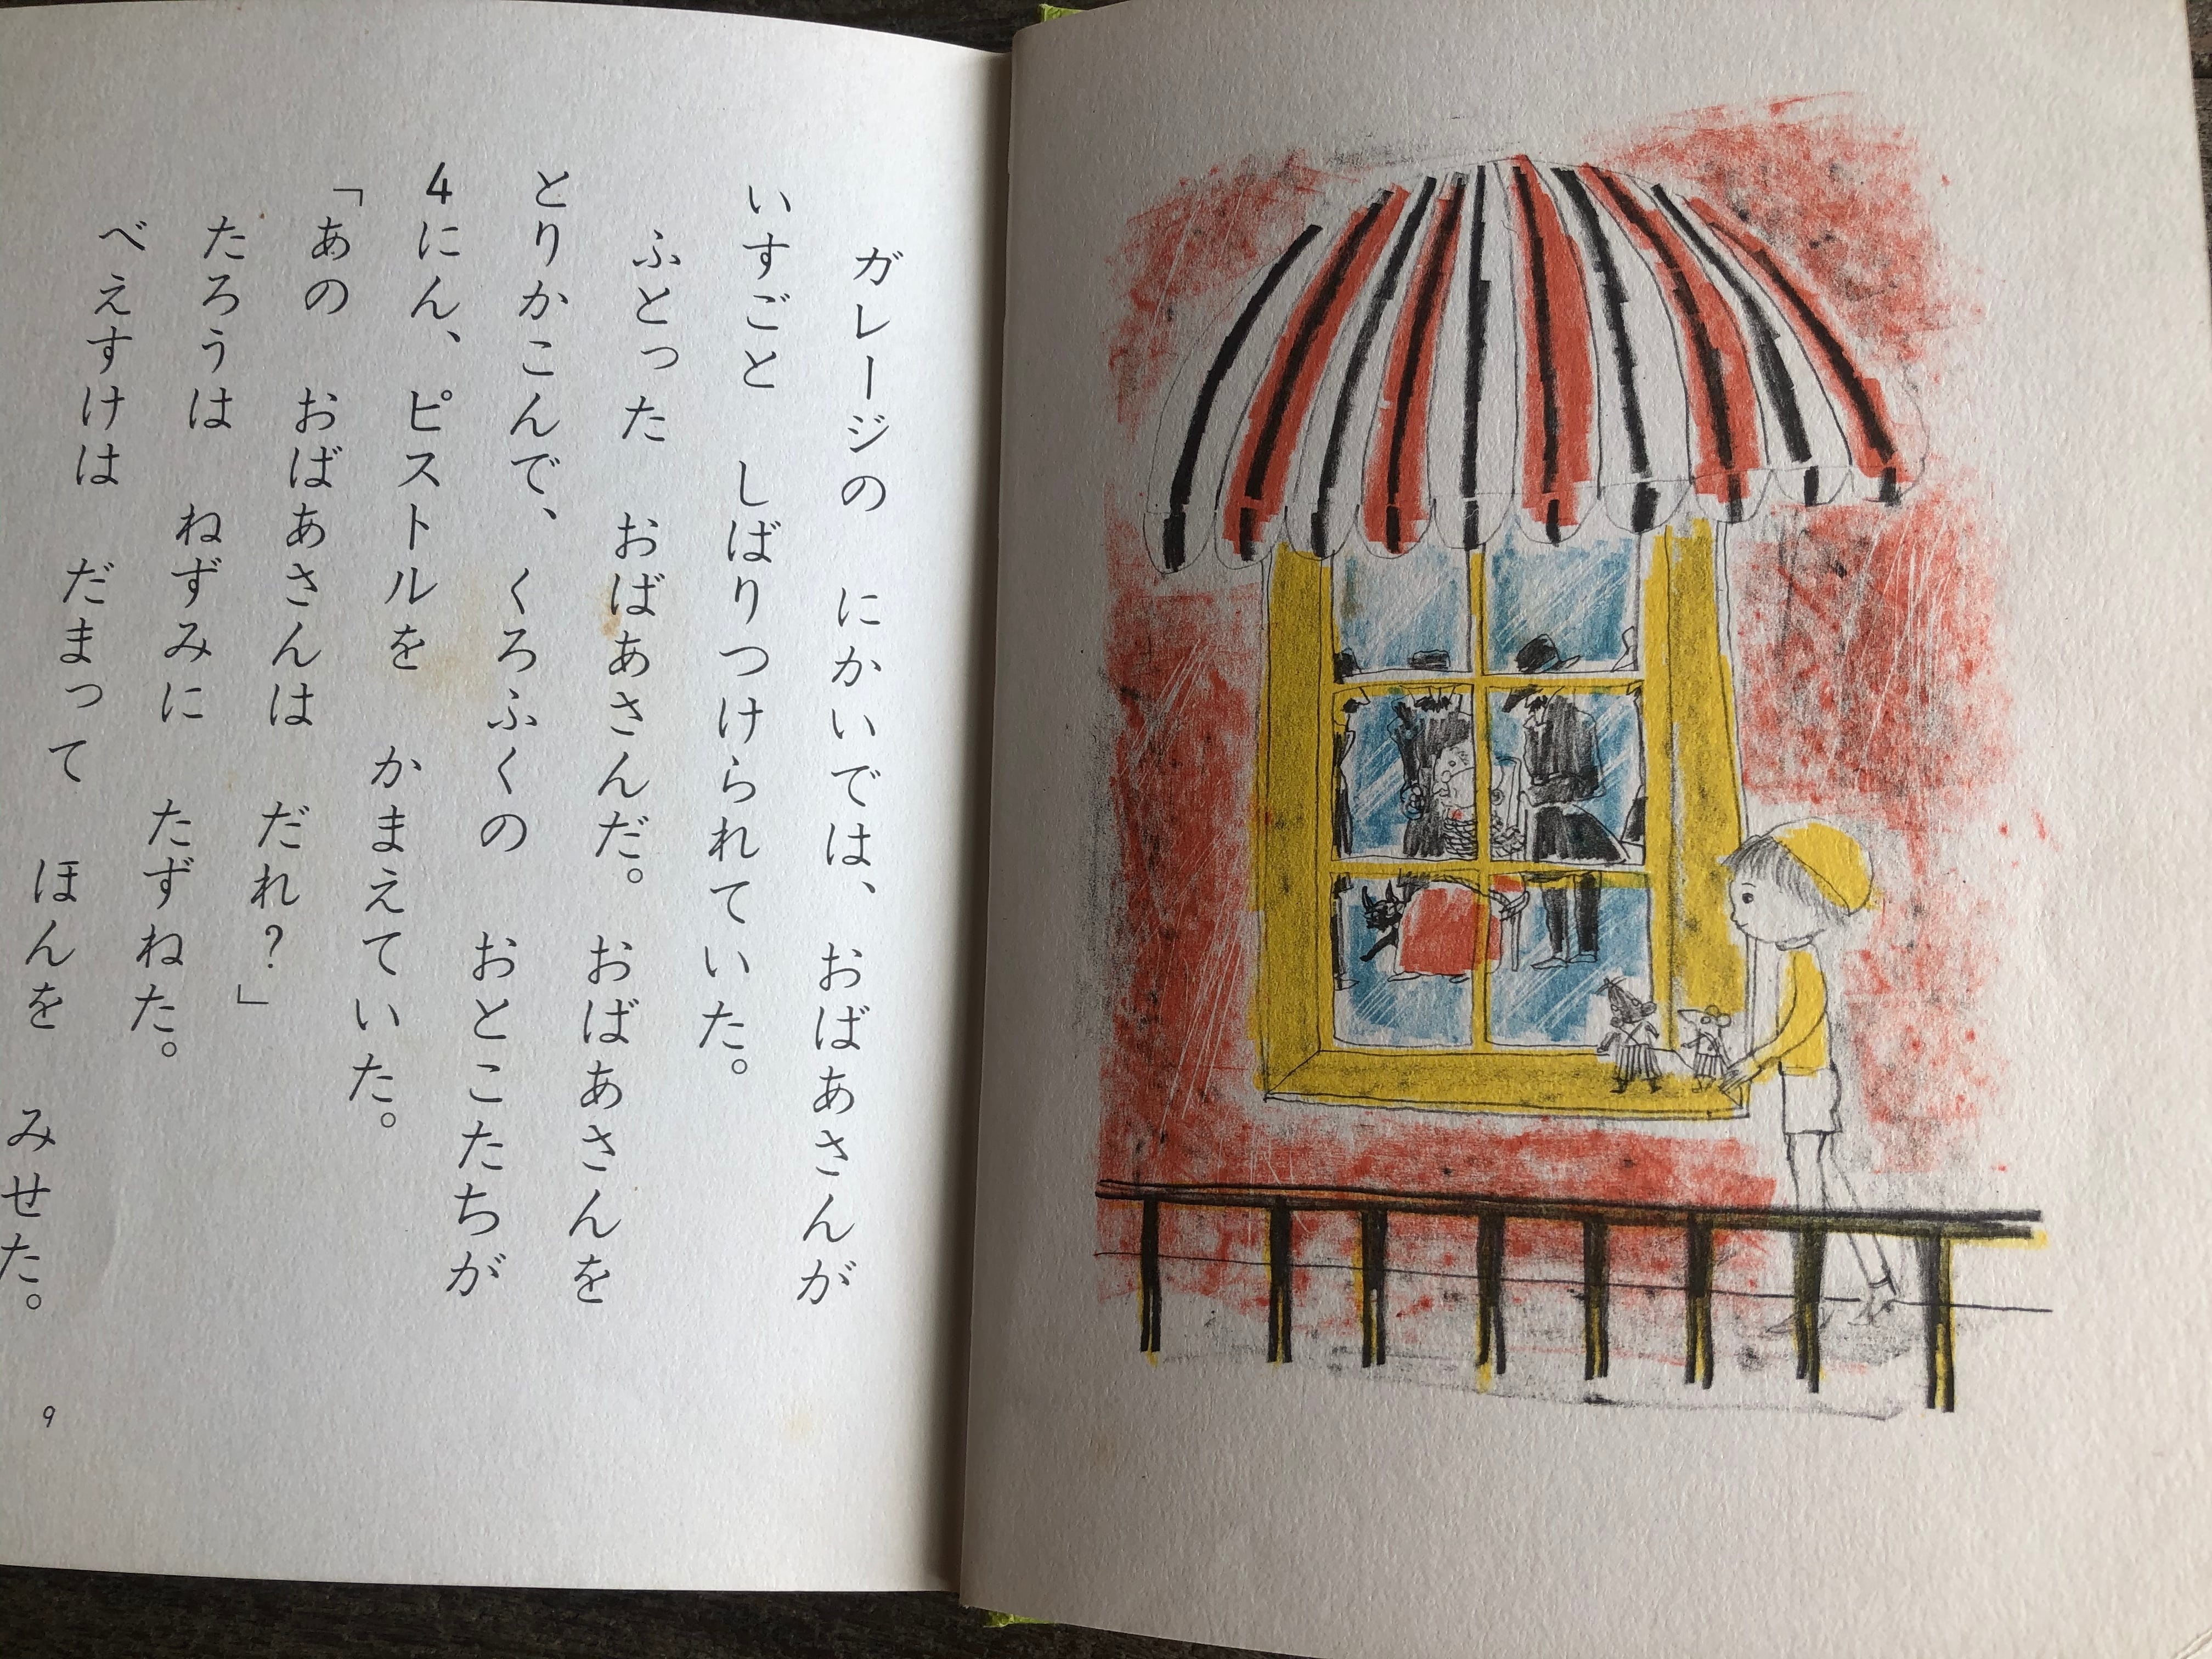 ガレージの にかいでは、 おばあさんが
いすごと しばりつけられていた。
ふとった おばあさんだ。 おばあさんを
とりかこんで、 くろふくの おとこたちが
4にん、 ピストルを かまえていた。
「あの おばあさんは だれ?」
たろうは ねずみに たずねた。
べえすけは だまって ほんを みせた。
9